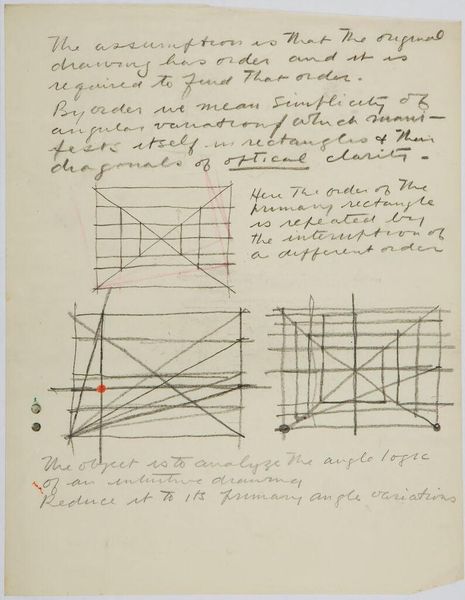 The assumption is that the original
drawing has order and it is
required to find that order.
By order we mean simplicity of
angular variations which mani-
fests itself in rectangles & their
diagonals of optical clarity.
Here the order of the
primary rectangle
is repeated by
the interruption of
a different order
The object is to analyze the angle logic
of an intuitive drawing
Reduce it to its primary angle variations